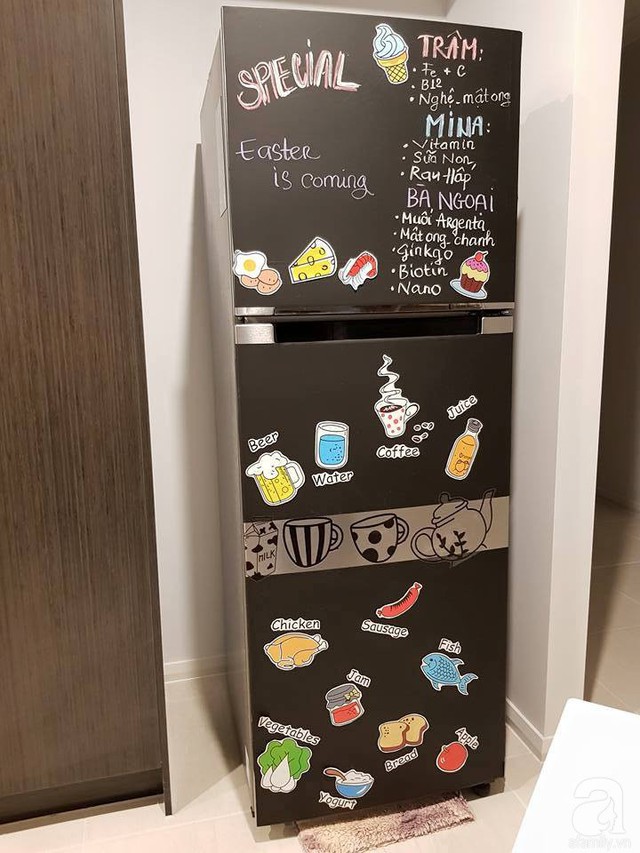 SPECIAL
Easter
is coming
TRÂM:
• Fe + C
• B12
• Nghệ_mật ong
MINA:
• Vitamin
• Sữa Non
• Rau Hấp
BÀ NGOẠI
• Muối Argenta
• Mật ong_chanh
• Ginkgo
• Biotin
• Nano
Beer
Water
Coffee
Juice
MILK
Chicken
Sausage
Fish
Jam
Vegetables
Bread
Apple
Yogurt
a
afamily.vn